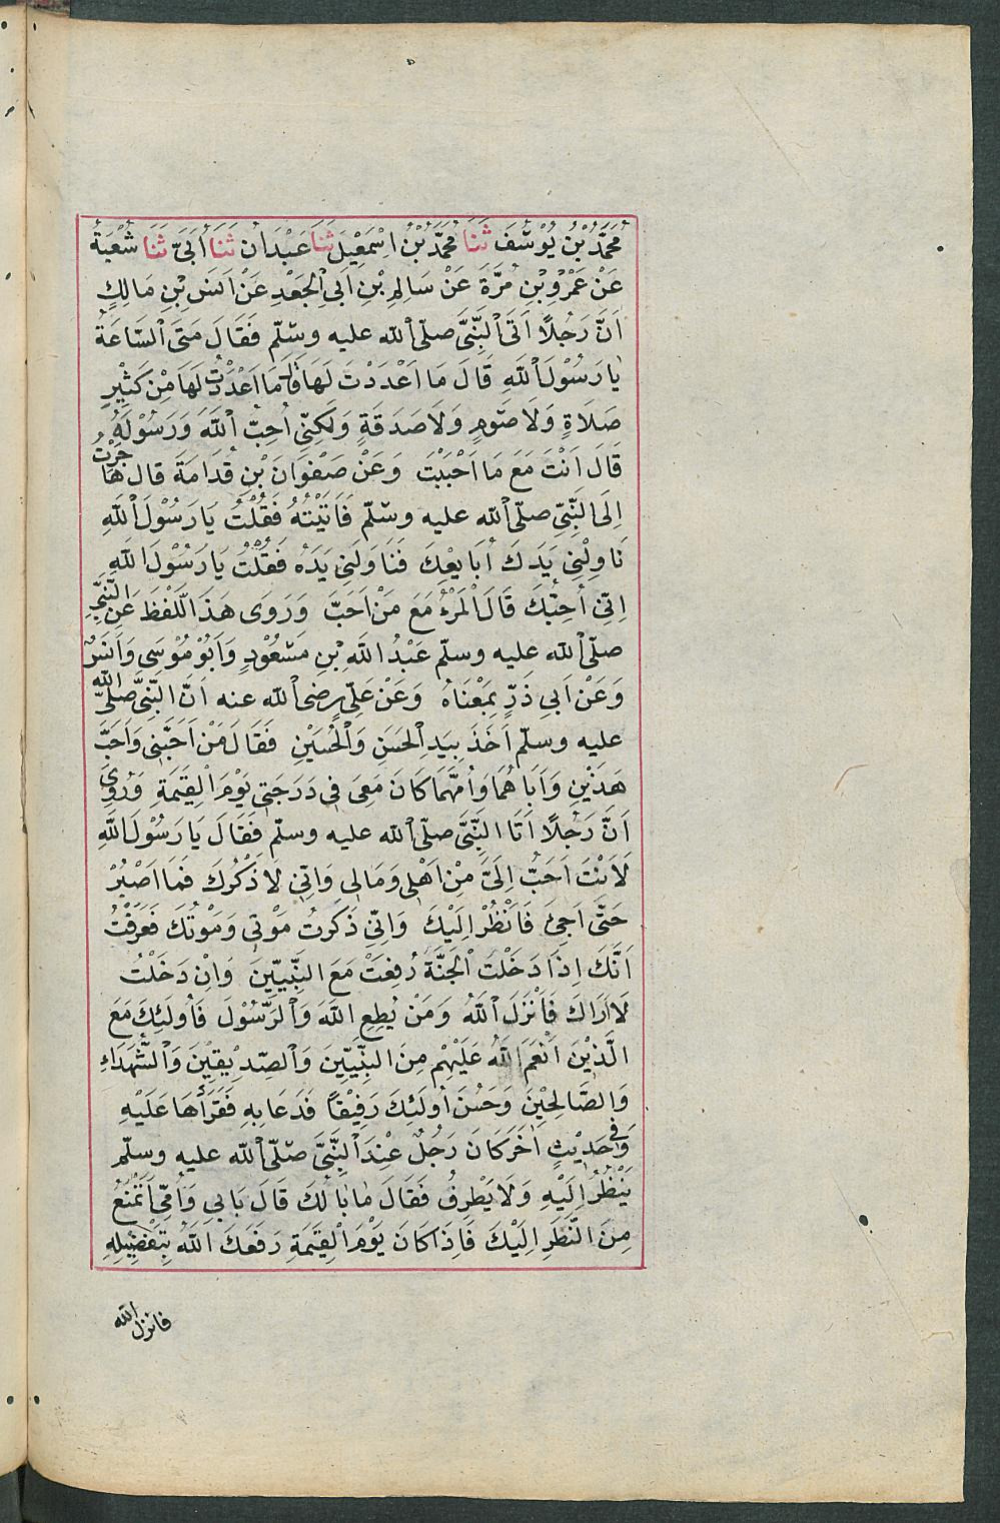 مُحَمَّدُ بْنُ يُوْسُفَ ثَنَا مُحَمَّدُ بْنُ اِسْمٰعِيْلَ ثَنَا عَبْدَانُ ثَنَا اَبِيْ ثَنَا شُعْبَةُ
عَنْ عَمْرِو بْنِ مُرَّةَ عَنْ سَالِمِ بْنِ اَبِي الْجَعْدِ عَنْ اَنَسِ بْنِ مَالِكٍ
اَنَّ رَجُلًا اَتَى النَّبِيَّ صلّى الله عليه وسلّم فَقَالَ مَتَى السَّاعَةُ
يَا رَسُوْلَ اللّٰهِ قَالَ مَا اَعْدَدْتَ لَهَا قَالَ مَا اَعْدَدْتُ لَهَا مِنْ كَثِيْرِ
صَلَاةٍ وَلَا صَوْمٍ وَلَا صَدَقَةٍ وَلَكِنِّي اُحِبُّ اللّٰهَ وَرَسُوْلَهُ
قَالَ اَنْتَ مَعَ مَا اَحْبَبْتَ وَعَنْ صَفْوَانَ بْنِ قُدَامَةَ قال هَاجَرْتُ
اِلَى النَّبِيِّ صلّى الله عليه وسلّم فَاَتَيْتُهُ فَقُلْتُ يَا رَسُوْلَ اللّٰهِ
نَاوِلْنِي يَدَكَ اُبَايِعْكَ فَنَاوَلَنِي يَدَهُ فَقُلْتُ يَا رَسُوْلَ اللّٰهِ
اِنِّي اُحِبُّكَ قَالَ الْمَرْءُ مَعَ مَنْ اَحَبَّ وَرَوَى هَذَا اللَّفْظَ عَنِ النَّبِيِّ
صلّى الله عليه وسلّم عَبْدُ اللّٰهِ بْنِ مَسْعُوْدٍ وَاَبُوْ مُوْسَى وَاَنَسٌ
وَعَنْ اَبِي ذَرٍّ بِمَعْنَاهُ وَعَنْ عَلِيٍّ رضى الله عنه اَنَّ النَّبِيَّ صلّى الله
عليه وسلّم اَخَذَ بِيَدِ الْحَسَنِ وَالْحُسَيْنِ فَقَالَ مَنْ اَحَبَّنِي وَاَحَبَّ
هَذَيْنِ وَاَبَاهُمَا وَاُمَّهُمَا كَانَ مَعِيَ فِي دَرَجَتِي يَوْمَ الْقِيٰمَةِ وَرُوِيَ
اَنَّ رَجُلًا اَتَا النَّبِيَّ صلّى الله عليه وسلّم فَقَالَ يَا رَسُوْلَ اللّٰهِ
لَاَنْتَ اَحَبُّ اِلَيَّ مِنْ اَهْلِي وَمَالِي وَاِنِّي لَاَذْكُرُكَ فَمَا اَصْبِرُ
حَتَّى اَجِيْءَ فَاَنْظُرُ اِلَيْكَ وَاِنِّي ذَكَرْتُ مَوْتِي وَمَوْتَكَ فَعَرَفْتُ
اَنَّكَ اِذَا دَخَلْتَ الْجَنَّةَ رُفِعْتَ مَعَ النَّبِيِّيْنَ وَاِنْ دَخَلْتُ
لَا اَرَاكَ فَاَنْزَلَ اللّٰهُ وَمَنْ يُطِعِ اللّٰهَ وَالرَّسُوْلَ فَاُولَئِكَ مَعَ
الَّذِيْنَ اَنْعَمَ اللّٰهُ عَلَيْهِمْ مِنَ النَّبِيِّيْنَ وَالصِّدِّيْقِيْنَ وَالشُّهَدَاءِ
وَالصَّالِحِيْنَ وَحَسُنَ اُولَئِكَ رَفِيْقًا فَدَعَا بِهِ فَقَرَأَهَا عَلَيْهِ
وَفِي حَدِيْثٍ اٰخَرَ كَانَ رَجُلٌ عِنْدَ النَّبِيِّ صلّى الله عليه وسلّم
يَنْظُرُ اِلَيْهِ وَلَا يَطْرِفُ فَقَالَ مَا بَالُكَ قَالَ بِاَبِي وَاُمِّي اَتَمَتَّعُ
مِنَ النَّظَرِ اِلَيْكَ فَاِذَا كَانَ يَوْمَ الْقِيٰمَةِ رَفَعَكَ اللّٰهُ بِتَفْضِيْلِهِ
فانزل الله